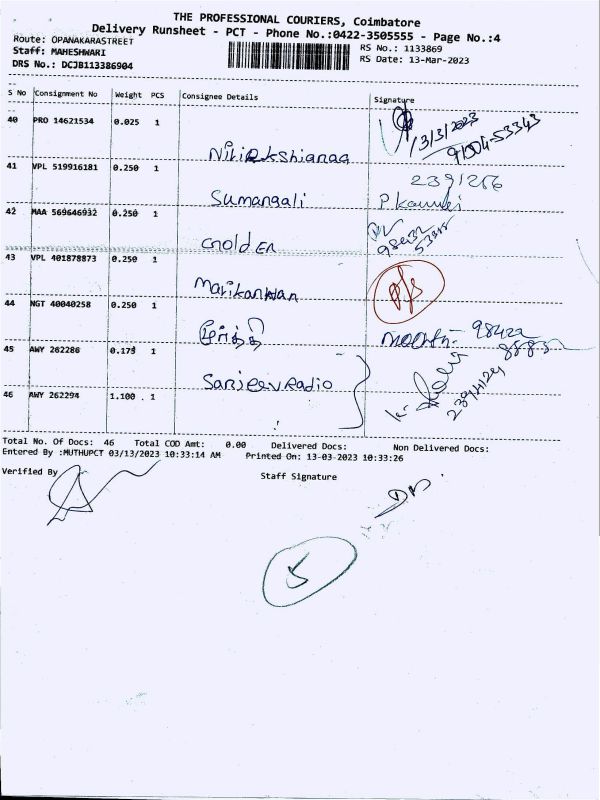 THE PROFESSIONAL COURIERS, Coimbatore
Delivery Runsheet - PCT - Phone No.:0422-3505555 - Page No.:4
Route: OPANAKARASTREET
RS No.: 1133869
Staff: MAHESHWARI
RS Date: 13-Mar-2023
DRS No.: DCJB113386904
S No Consignment No Weight PCS Consignee Details Signature
40 PRO 14621534 0.025 1
13/3/2023
91504-53343
41 VPL 519916181 0.250 1 2391266
Sumangali
42 MAA 569646932 0.250 1
Golden
43 VPL 401878873 0.250 1
Marikannan
44 NGT 40040258 0.250 1
98422
45 AWY 262286 0.175 1
Sanjeev Radio
46 AWY 262294 1.100 1
Total No. Of Docs: 46 Total COD Amt: 0.00 Delivered Docs: Non Delivered Docs:
Entered By :MUTHUPCT 03/13/2023 10:33:14 AM Printed On: 13-03-2023 10:33:26
Verified By Staff Signature
5